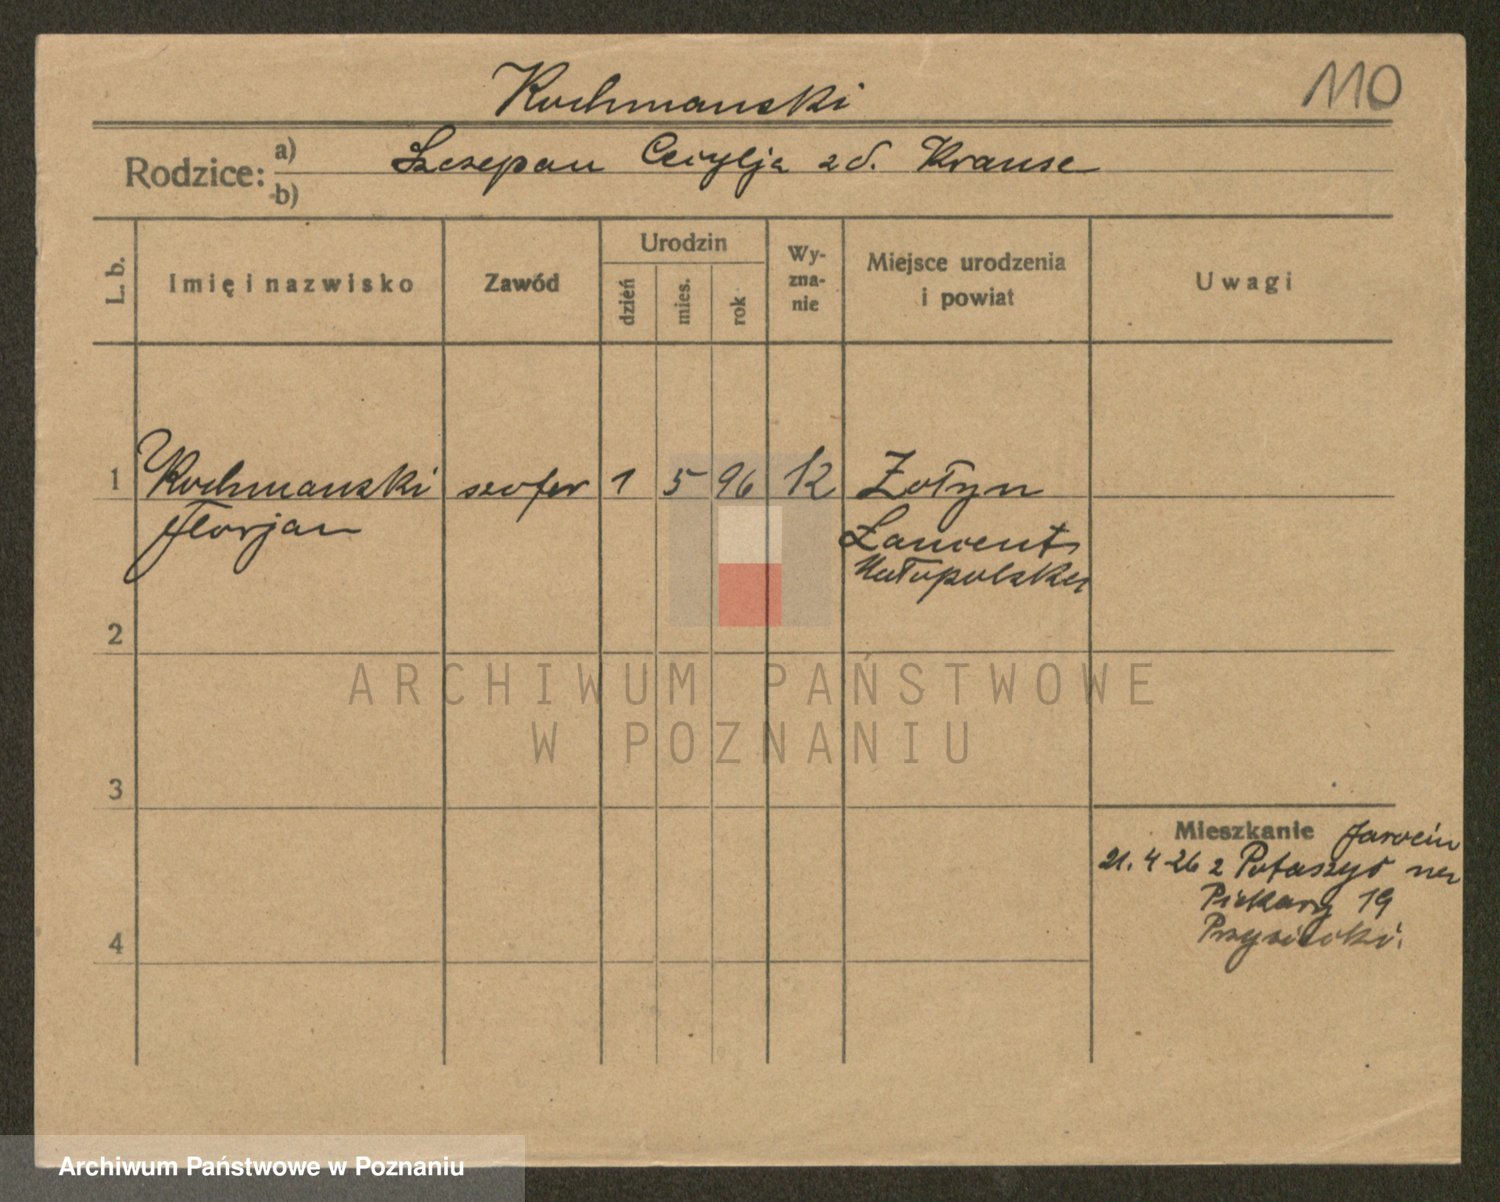 Kochmanski
110
Rodzice: a) Szczepan Cecylja zd. Krause
b)
L. b.
Imię i nazwisko
Zawód
Urodzin
dzień
mies.
rok
Wy-
zna-
nie
Miejsce urodzenia
i powiat
Uwagi
1 Kochmanski szofer 1 5 96 Żołyn
Florjan Łancent
Małopolska
2
3
4
Mieszkanie Jarocin
21. 4 26 z Potaszyc na
Piekary 19
ARCHIWUM PAŃSTWOWE
W POZNANIU
Archiwum Państwowe w Poznaniu